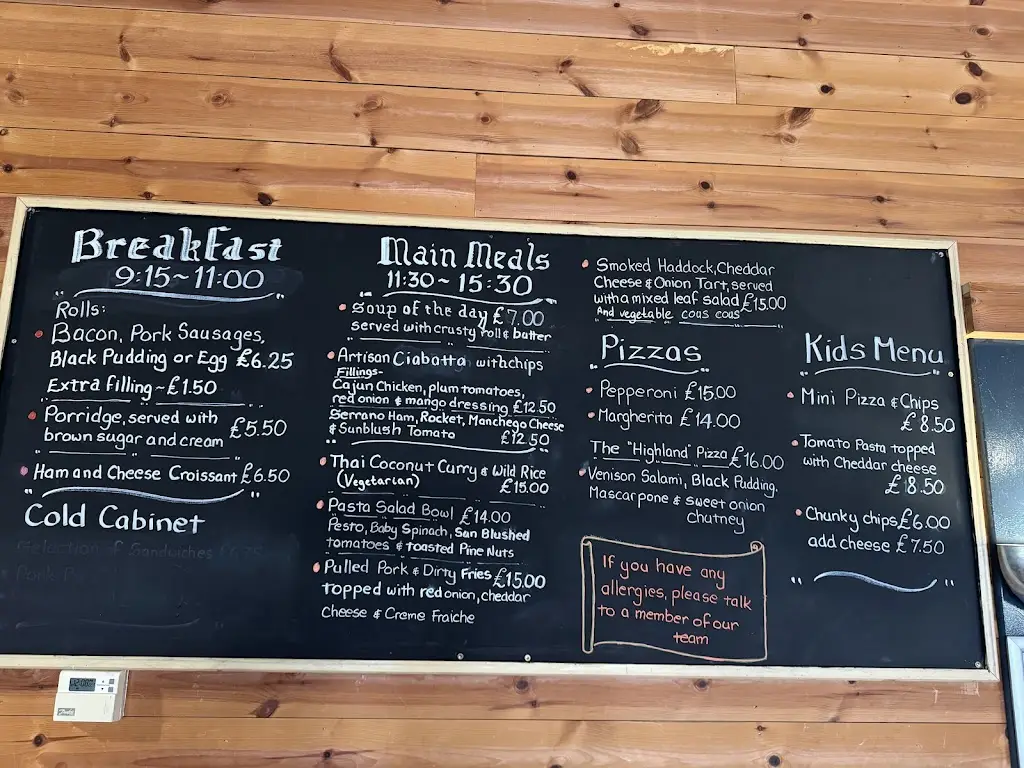 Breakfast
9:15~11:00
Rolls:
Bacon, Pork Sausages,
Black Pudding or Egg £6.25
Extra filling ~ £1.50
Porridge, served with
brown sugar and cream £5.50
Ham and Cheese Croissant £6.50
Cold Cabinet
Selection of Sandwiches £6.25
Main Meals
11:30~15:30
Soup of the day £7.00
served with crusty roll & butter
Artisan Ciabatta with chips
Fillings-
Cajun Chicken, plum tomatoes,
red onion & mango dressing £12.50
Serrano Ham, Rocket, Manchego Cheese
& Sunblush Tomato £12.50
Thai Coconut Curry & Wild Rice
(Vegetarian) £15.00
Pasta Salad Bowl £14.00
Pesto, Baby Spinach, San Blushed
tomatoes & toasted Pine Nuts
Pulled Pork & Dirty Fries £15.00
topped with red onion, cheddar
Cheese & Creme Fraiche
Smoked Haddock, Cheddar
Cheese & Onion Tart, served
with a mixed leaf salad £15.00
And vegetable cous cous
Pizzas
Pepperoni £15.00
Margherita £14.00
The "Highland" Pizza £16.00
Venison Salami, Black Pudding,
Mascarpone & sweet onion
chutney
If you have any
allergies, please talk
to a member of our
team
Kids Menu
Mini Pizza & Chips
£8.50
Tomato Pasta topped
with Cheddar cheese
£8.50
Chunky chips £6.00
add cheese £7.50